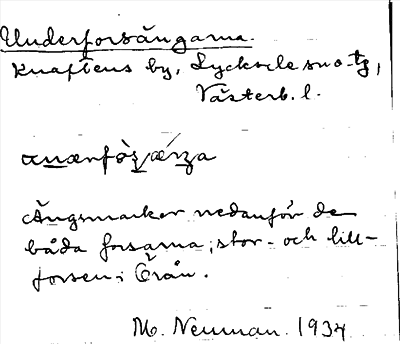 Underforsängarna.
Knaftens by, Lycksele sn o tg,
Västerb. l.
Ängsmarker nedanför de
båda forsarna, stor- och lill-
forsen i Örån.
M. Neuman. 1934